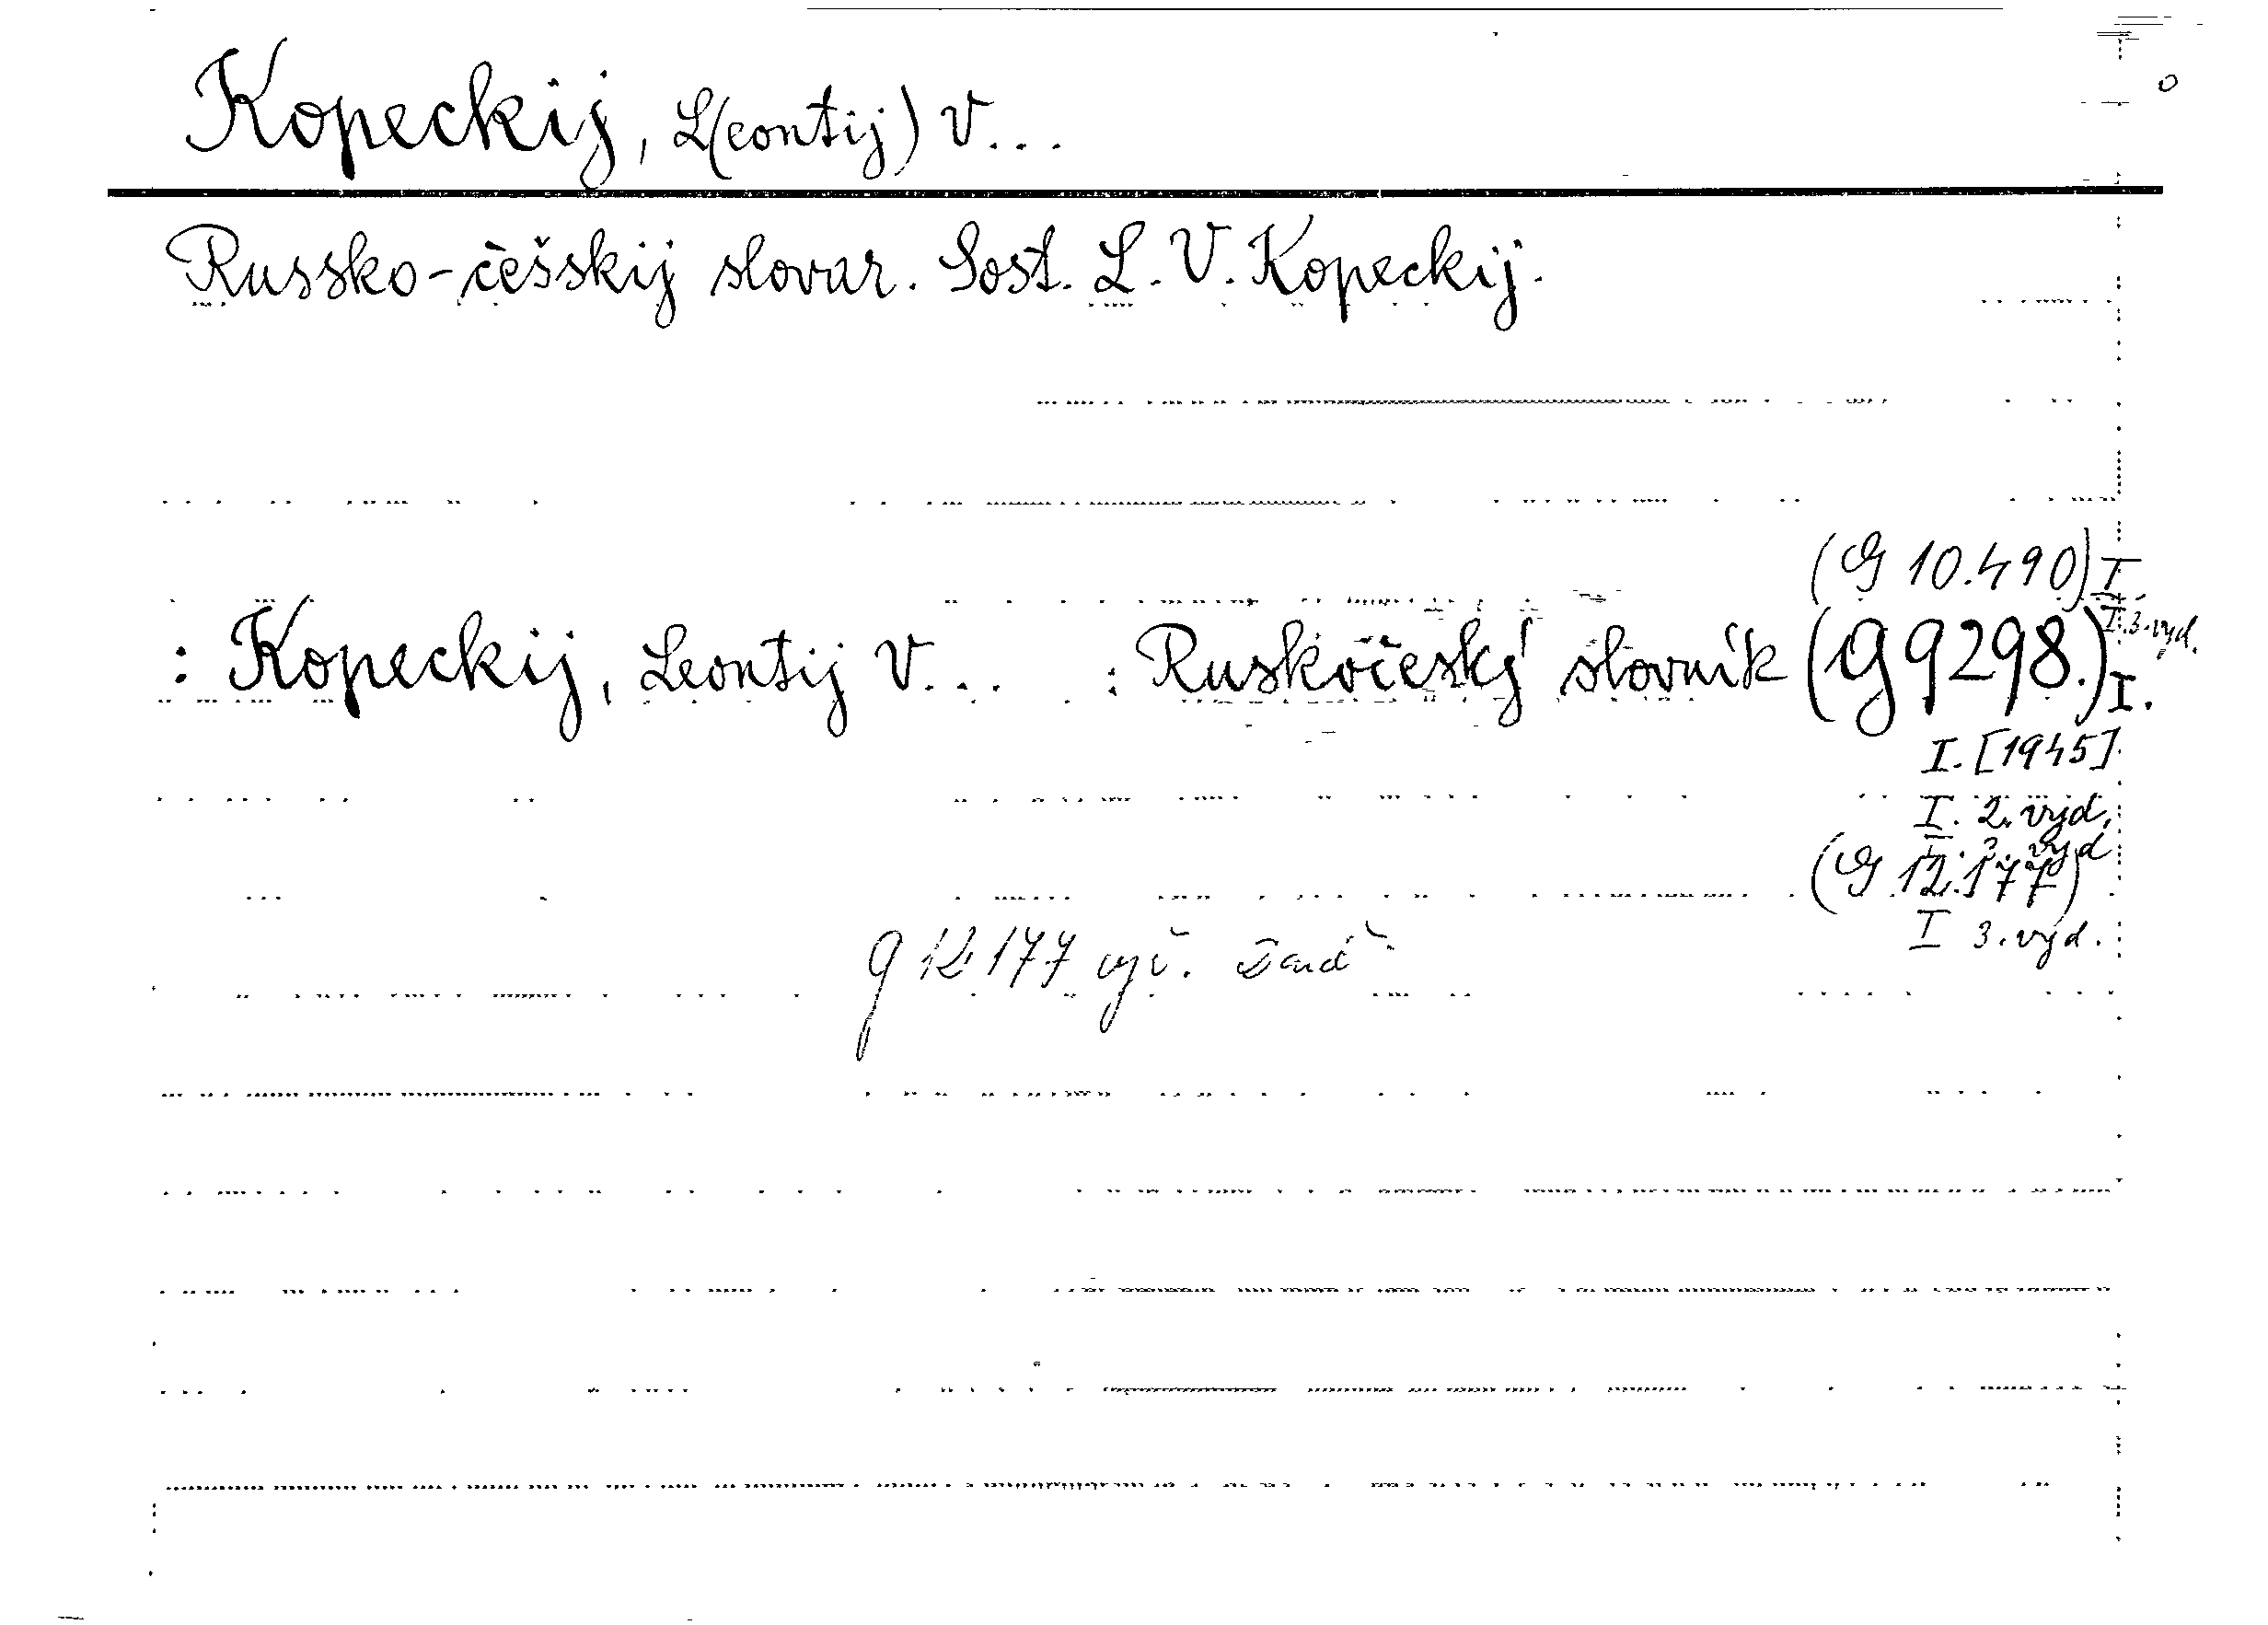 Kopeckij, L(eontij) V...
Russko-čèšskij slovar. Sost. L. V. Kopeckij.
(G 10.490) I
I. 3. vyd.
: Kopeckij, Leontij V... : Ruskočeský slovník (G 9298.) I.
I. [1945]
I. 2. vyd.
I. 3. vyd
(G 12.177)
I 3. vyd.
G 12.177